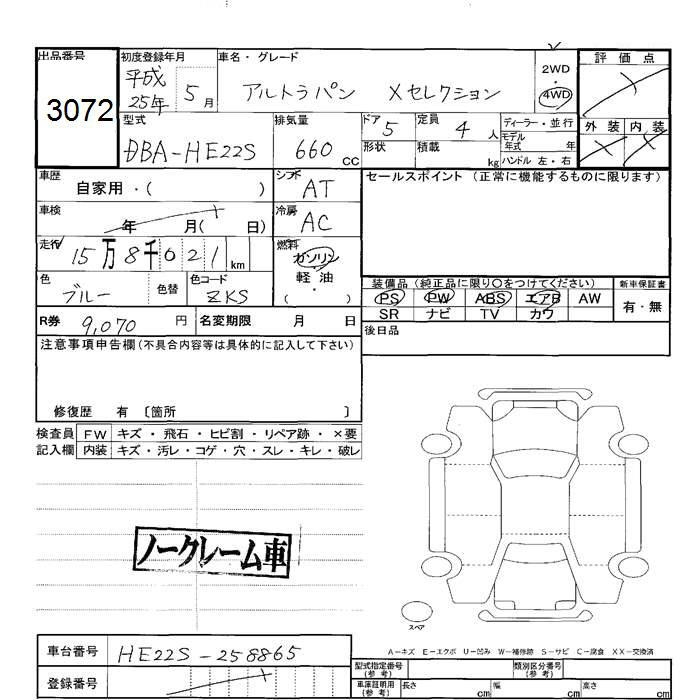 出品番号 初度登録年月 車名・グレード 評価点
3072 平成25年 5月 アルトラパン Xセレクション 2WD・4WD
型式 排気量 ドア 定員 ディーラー・並行 外装 内装
DBA-HE22S 660cc 5 4人 モデル年式 年
形状 積載 kg ハンドル 左・右
車歴 シフト セールスポイント(正常に機能するものに限ります)
自家用・( ) AT
車検 冷房
年 月( 日) AC
走行 燃料
15万8千021km ガソリン
軽油
・( )
色 色替 色コード 装備品(純正品に限り○をつけてください) 新車保証書
ブルー ZKS PS PW ABS エアB AW 有・無
SR ナビ TV カワ
R券 9,070円 名変期限 月 日 後日品
注意事項申告欄(不具合内容等は具体的に記入して下さい)
修復歴 有 〔箇所 〕
検査員 FW キズ・飛石・ヒビ割・リペア跡・×要
記入欄 内装 キズ・汚レ・コゲ・穴・スレ・キレ・破レ
ノークレーム車
スペア
A-キズ E-エクボ U-凹み W-補修跡 S-サビ C-腐食 XX-交換済
車台番号 HE22S-258865
型式指定番号(参考) 類別区分番号(参考)
登録番号
車庫証明用(参考) 長さ cm 幅 cm 高さ cm